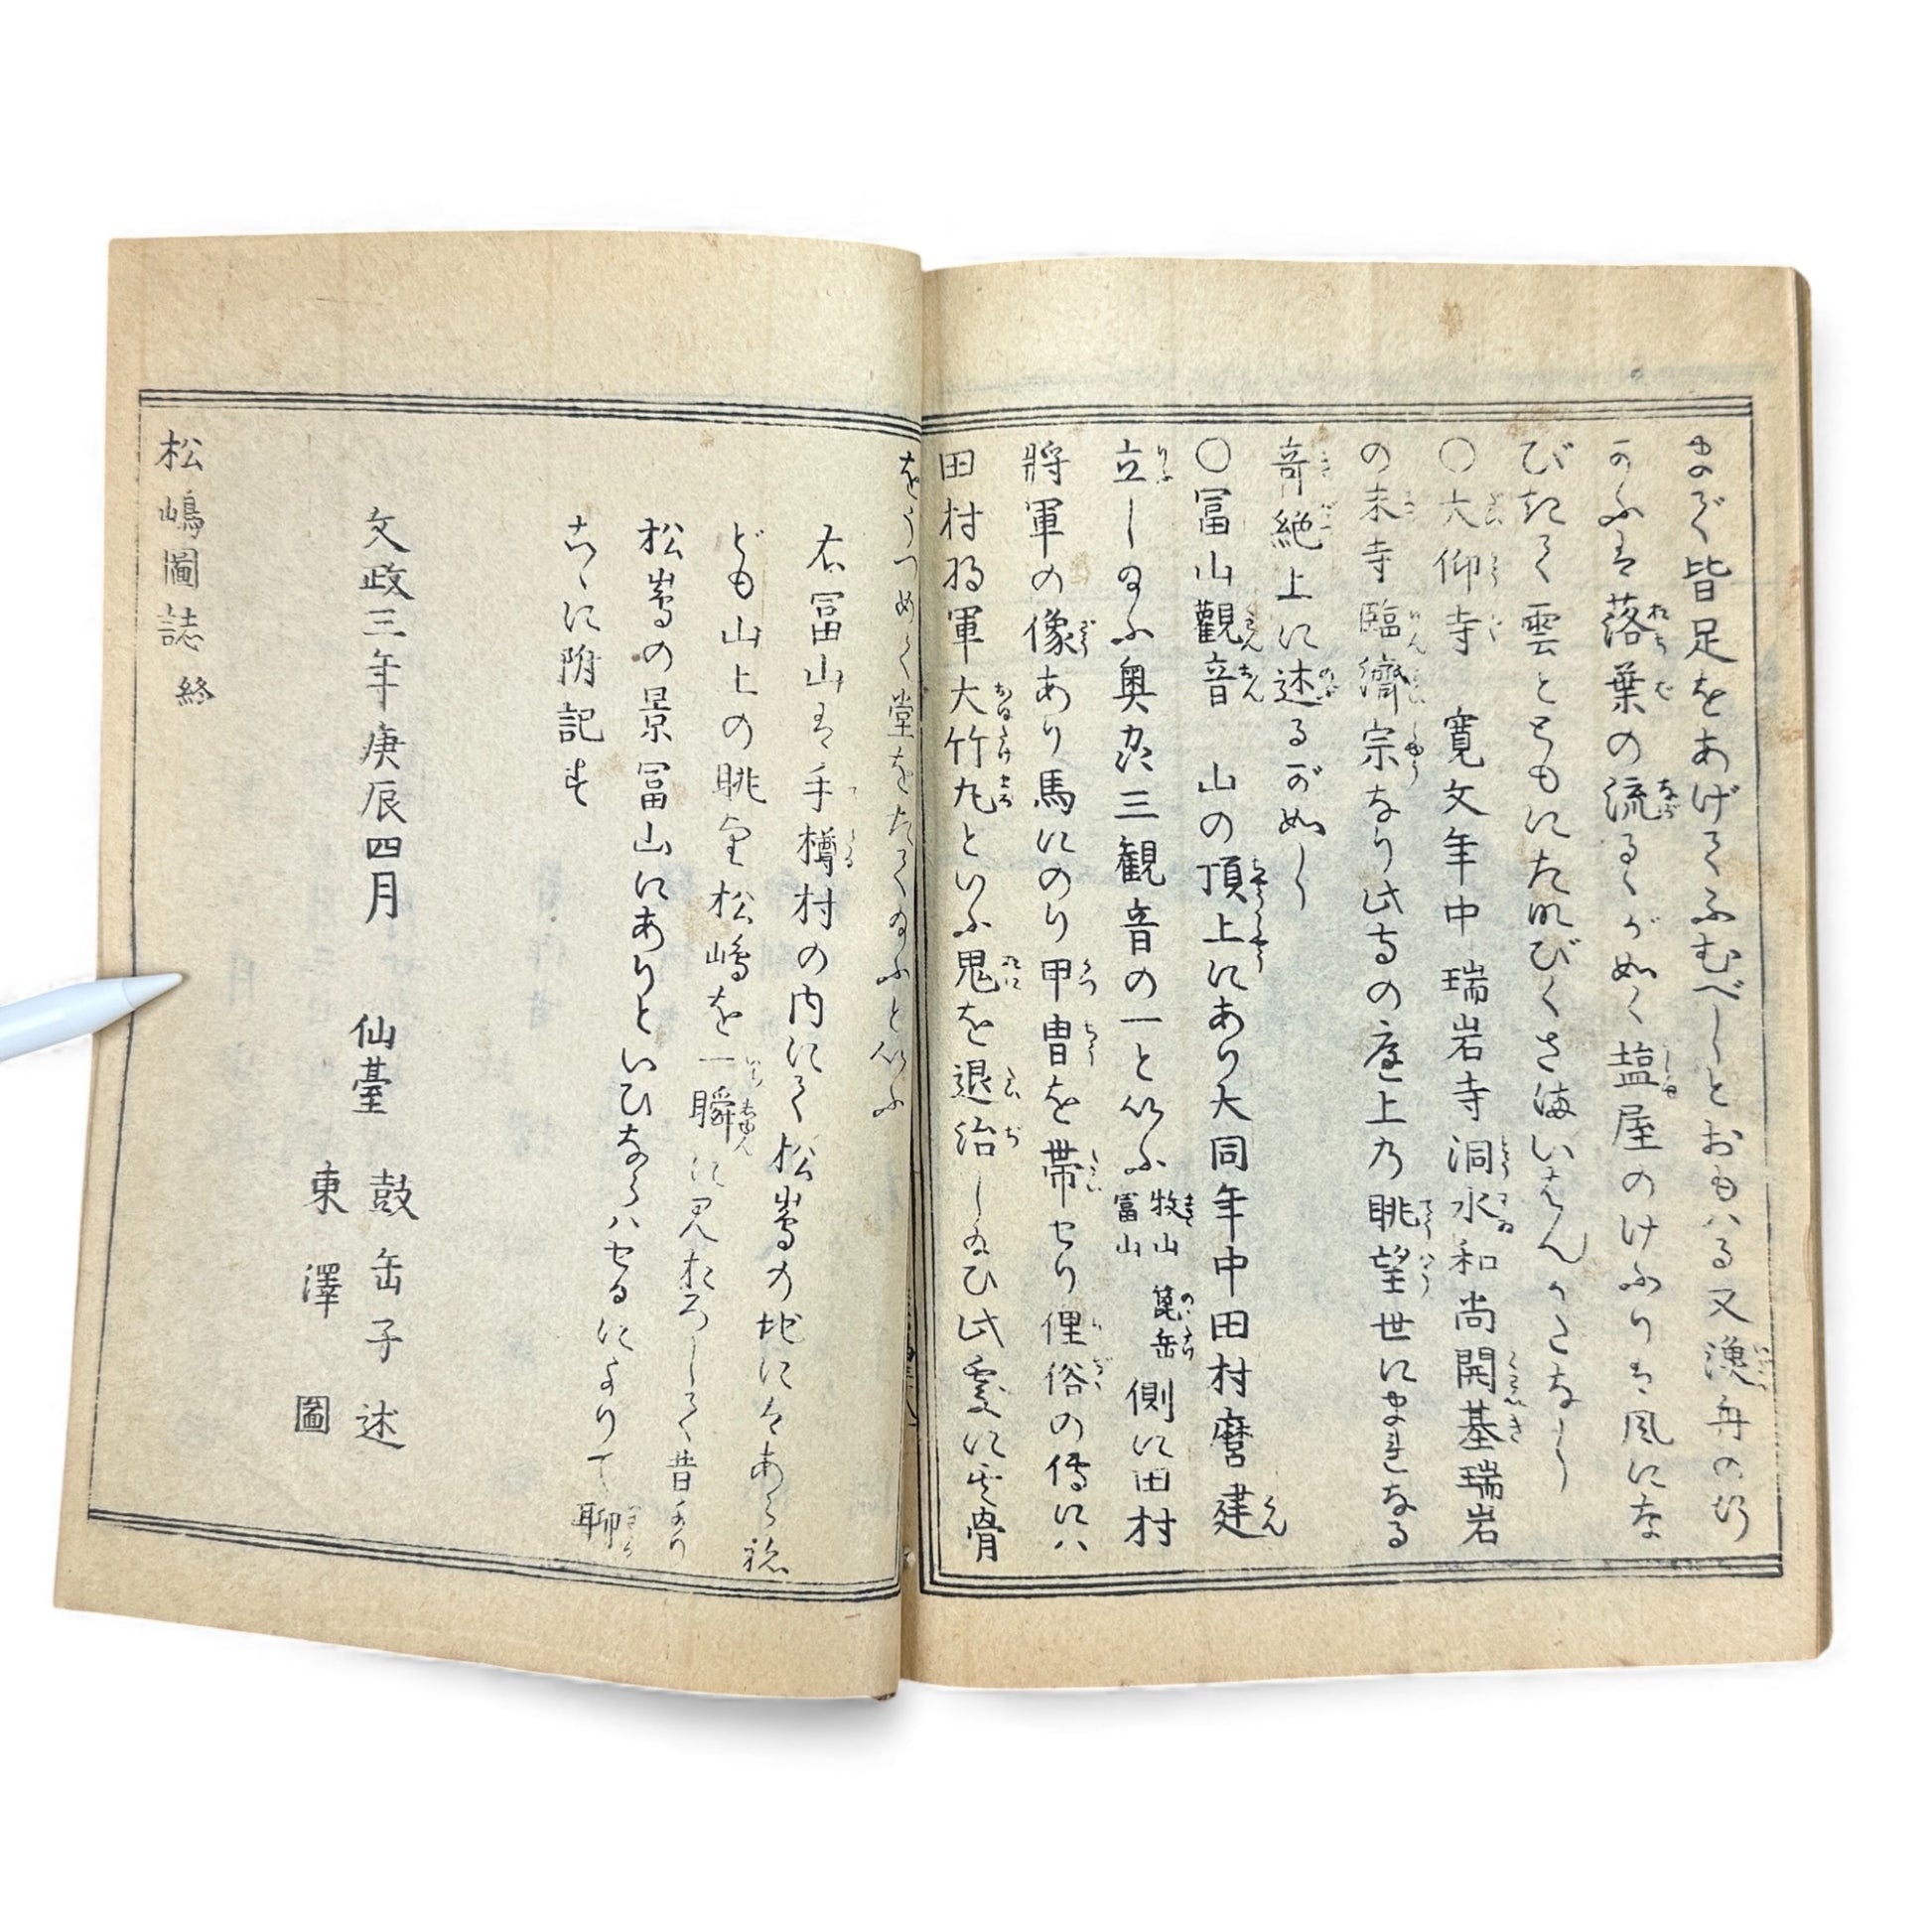 まので皆足をあげてふむべしとおもハる又漁舟の行
かふは落葉の流るゝが如く塩屋のけふりは風にな
びきて雲とともにたなびくさまいはんかたなし
○大仰寺 寛文年中瑞岩寺洞水和尚開基瑞岩
の末寺臨濟宗なり此寺の庭上乃眺望世にまれなる
奇絶上に述るが如し
○冨山觀音 山の頂上にあり大同年中田村麿建
立し給ふ奥州三観音の一といふ牧山 富山 箟岳 側に田村
將軍の像あり馬にのり甲冑を帯セり俚俗の傳にハ
田村将軍大竹丸といふ鬼を退治し給ひ此處に其骨
をうづめて堂をたて給ふといふ
右冨山は手樽村の内にて松嶌の地にはあらねど
ども山上の眺望松嶋を一瞬に見おろして昔より
松嶌の景冨山にありといひならハセるによりて聊
こゝに附記す
文政三年庚辰四月 仙臺 鼓缶子述
東澤圖
松嶋圖誌終